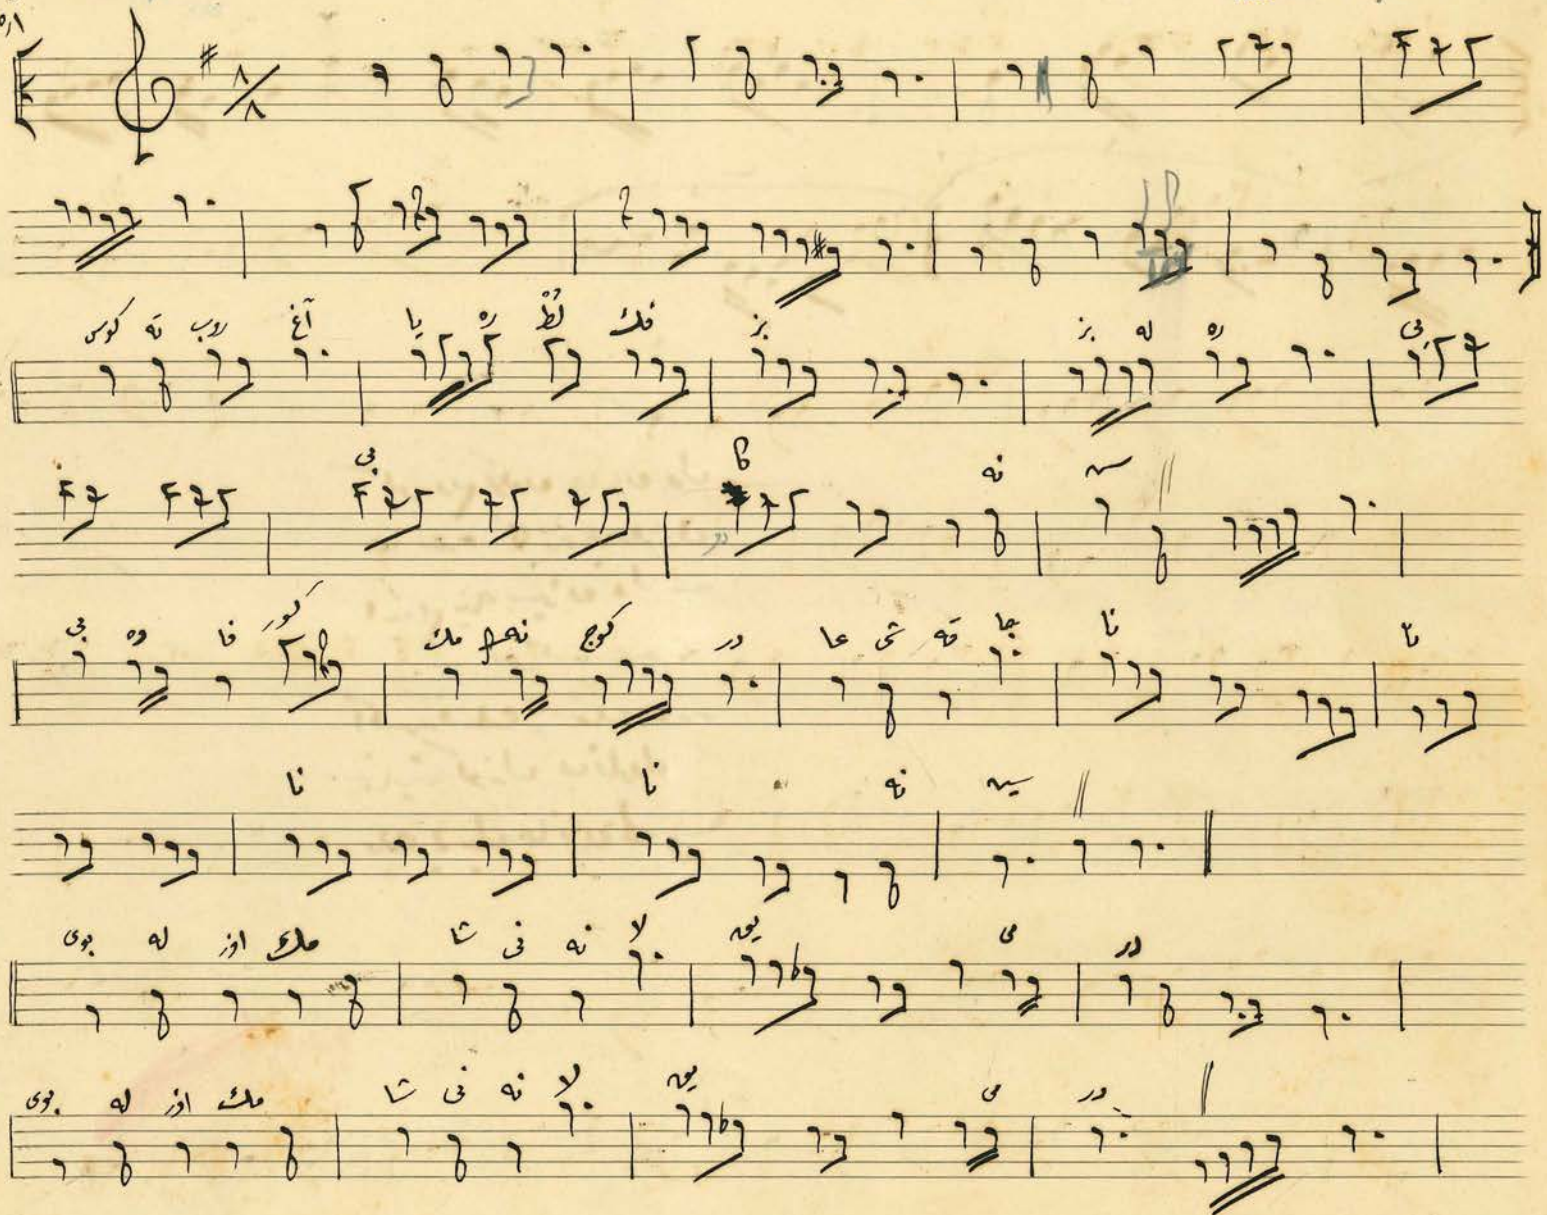 ٨/٨
كوس ته روب آغ يا ره لُطْ فك بز بز له ره نى
بى كا نه سه
بى وه فا كور مك نه كوج در عا شى قه جا نا نا
نا نا نه سين
بوى له اوز مك شا نى نه لا يق مى در
بوى له اوز مك شا نى نه لا يق مى در